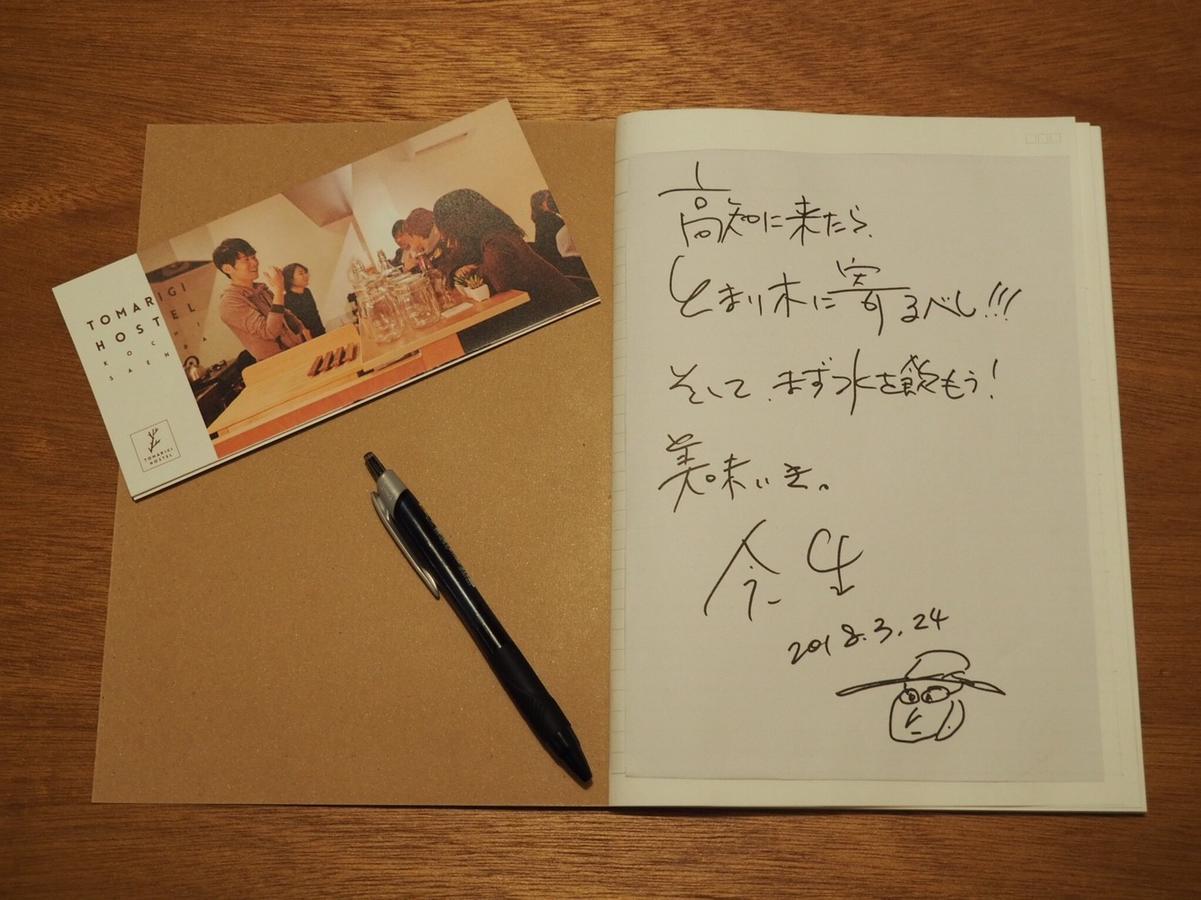 TOMARIGI
HOSTEL
KOCHI
SAENBA
TOMARIGI
HOSTEL
高知に来たら、
とまり木に寄るべし!!!
そして、まず水を飲もう!
美味いき。
今生
2018.3.24